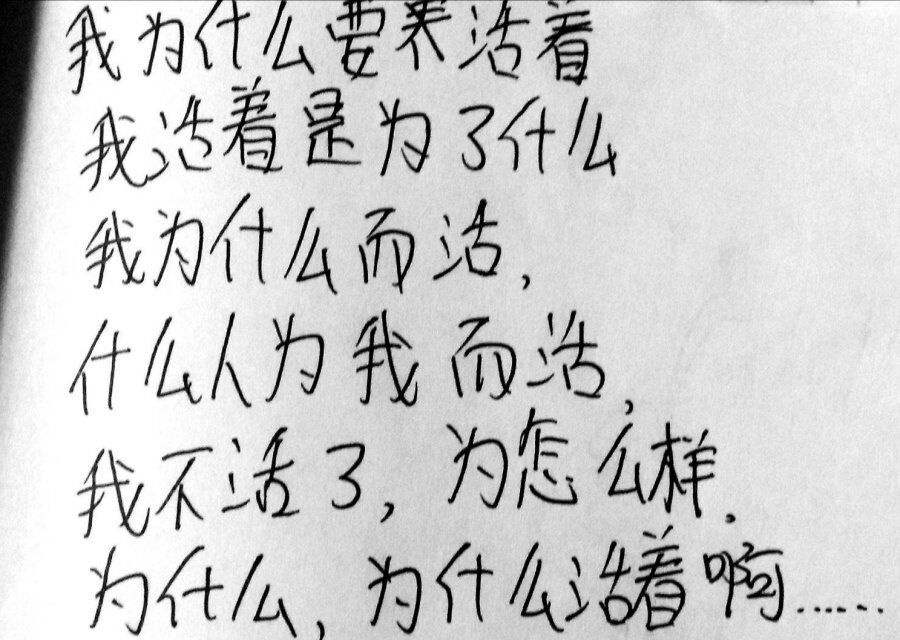 我为什么要养活着
我活着是为了什么
我为什么而活,
什么人为我而活,
我不活了,为怎么样.
为什么,为什么活着啊......